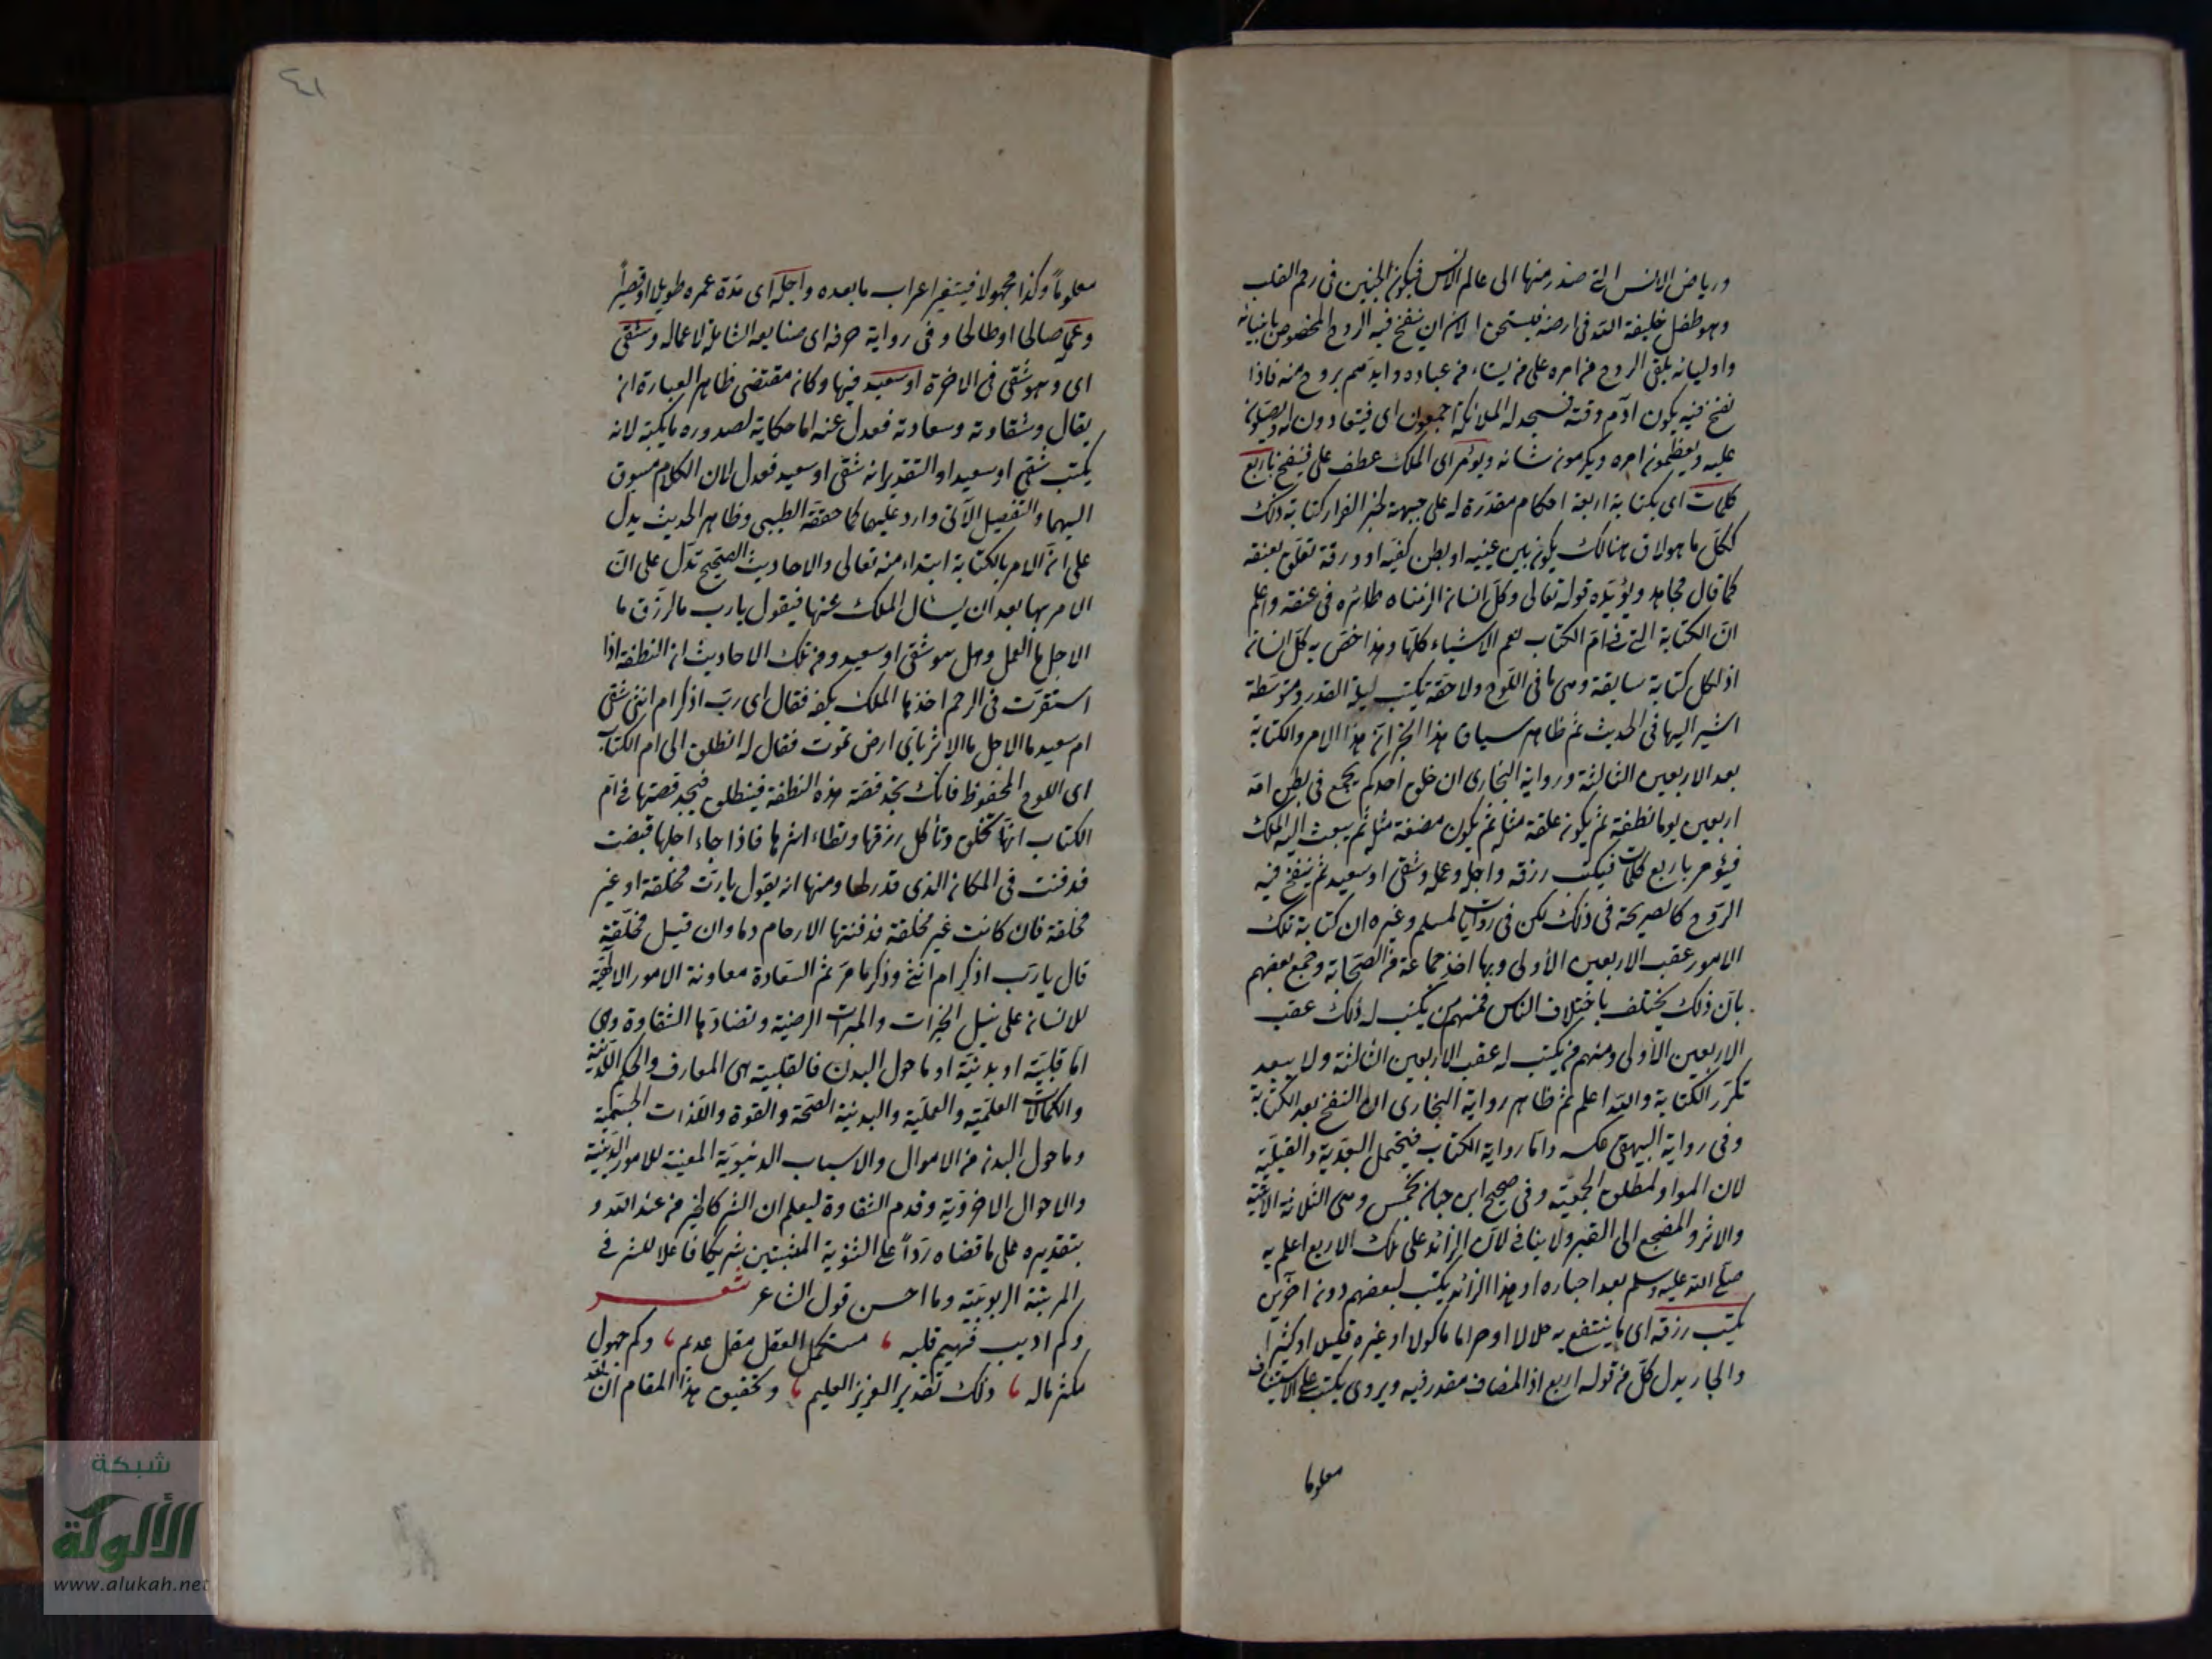 ورياض الانس التي صدر منها الى عالم الانس فيكون الجنين في رحم القلب
وهو طفل خليفة الله في ارضه فيستحق الان ان ينفخ فيه الروح المخصوص بانبيائه
واوليائه يلقى الروح من امره على من يشاء من عباده وايدهم بروح منه فاذا
نفخ فيه يكون ادم وقته فسجد له الملائكة اجمعون اى فينقادون له ويصلون
عليه ويعظمون امره ويكرمون شانه ويؤمر اى الملك عطف على فينفخ باربع
كلمات اى بكتابة اربعة احكام مقدرة له على جبهته لخبر البزار كتابة ذلك
لكل ما هو لاق هنالك يكون بين عينيه او بطن كفيه او ورقة تعلق بعنقه
كما قال مجاهد ويؤيده قوله تعالى وكل انسان الزمناه طائره فى عنقه واعلم
ان الكتابة التي في ام الكتاب تعم الاشياء كلها وهذا خص به كل انسان
اذ لكل كتابة سابقة وهى ما فى اللوح ولاحقة تكتب ليلة القدر ومتوسطة
اشير اليها فى الحديث ثم ظاهر سياق هذا الخبر ان هذا الامر والكتابة
بعد الاربعين الثالثة ورواية البخارى ان خلق احدكم يجمع فى بطن امه
اربعين يوما نطفة ثم يكون علقة مثله ثم يكون مضغة مثله ثم يبعث اليه الملك
فيؤمر باربع كلمات فيكتب رزقه واجله وعمله وشقى او سعيد ثم ينفخ فيه
الروح كالصريحة فى ذلك لكن فى روايات لمسلم وغيره ان كتابة تلك
الامور عقب الاربعين الأولى وبها اخذ جماعة من الصحابة وجمع بعضهم
بان ذلك يختلف باختلاف الناس فمنهم من يكتب له ذلك عقب
الاربعين الأولى ومنهم من يكتب له عقب الاربعين الثالثة ولا يبعد
تكرر الكتابة والله اعلم ثم ظاهر رواية البخارى ان النفخ بعد الكتابة
وفى رواية البيهقى عكسه واما رواية الكتاب فيحتمل البعدية والقبلية
لان الواو لمطلق الجمعية وفى صحيح ابن حبان بخمس وهى الثلاثة الاتية
والاثر والمضجع اى القبر ولا ينافي لان الزائد على تلك الاربع اعلم به
صلى الله عليه وسلم بعد اخباره او هذا الزائد يكتب لبعضهم دون اخرين
يكتب رزقه اى ما ينتفع به حلالا او حراما ماكولا او غيره قليلا او كثيرا
والجار بدل كل من قوله اربع اذ المضاف مقدر فيه ويروى يكتب على الاستيناف
معلوما
٤١
معلوماً وكذا مجهولا فيتغير اعراب ما بعده واجله اى مدة عمره طويلا او قصيراً
وعمله صالحا او طالحا وفى رواية حرفه اى صنايعه الشاملة لاعماله وشقى
اى وهو شقى فى الاخرة او سعيد فيها وكان مقتضى ظاهر العبارة ان
يقال وشقاوته وسعادته فعدل عنه اما حكاية لصدوره ما يكتبه لانه
يكتب شقى او سعيد او التقدير انه شقى او سعيد فعدل لان الكلام مسوق
اليهما والتفصيل الآتى وارد عليهما كما حققه الطيبى وظاهر الحديث يدل
على ان الامر بالكتابة ابتداء منه تعالى والاحاديث الصحيح تدل على ان
الامر بها بعد ان يسئال الملك عنها فيقول يا رب ما الرزق ما
الاجل ما العمل وهل هو شقى او سعيد ومن تلك الاحاديث ان النطفة اذا
استقرت فى الرحم اخذها الملك بكفه فقال اى رب اذكر ام انثى شقى
ام سعيد ما الاجل ما الاثر باى ارض تموت فقال له انطلق الى ام الكتاب
اى اللوح المحفوظ فانك تجد قصة هذه النطفة فينطلق فيجد قصتها في ام
الكتاب انها تخلق وتأكل رزقها وتطاء اثرها فاذا جاء اجلها قبضت
فدفنت فى المكان الذى قدر لها ومنها انه يقول يا رب مخلقة او غير
مخلقة فان كانت غير مخلقة قذفتها الارحام دما وان قيل مخلقة
قال يا رب اذكر ام انثى وذكر ما مر ثم السعادة معاونة الامور الالهية
للانسان على نيل الخيرات والمبرات الرضية وتضادها الشقاوة وهى
اما قلبية او بدنية او ما حول البدن فالقلبية هى المعارف والحكم اللدنية
والكمالات العلمية والعملية والبدنية الصحة والقوة واللذات الجسمية
وما حول البدن من الاموال والاسباب الدنيوية المعينة للامور الدينية
والاحوال الاخروية وقدم الشقاوة ليعلم ان الشر كالخير من عند الله و
بتقديره على ما قضاه رداً على الثنوية المثبتين شريكا فاعلا للشر فى
المرتبة الربوبية وما احسن قول الشاعر شعر
وكم اديب فهيم قلبه ، مستكمل العقل مقل عديم ، وكم جهول
مكثر ماله ، ذلك تقدير العزيز العليم ، وتحقيق هذا المقام ان
شبكة
الألوكة
www.alukah.net